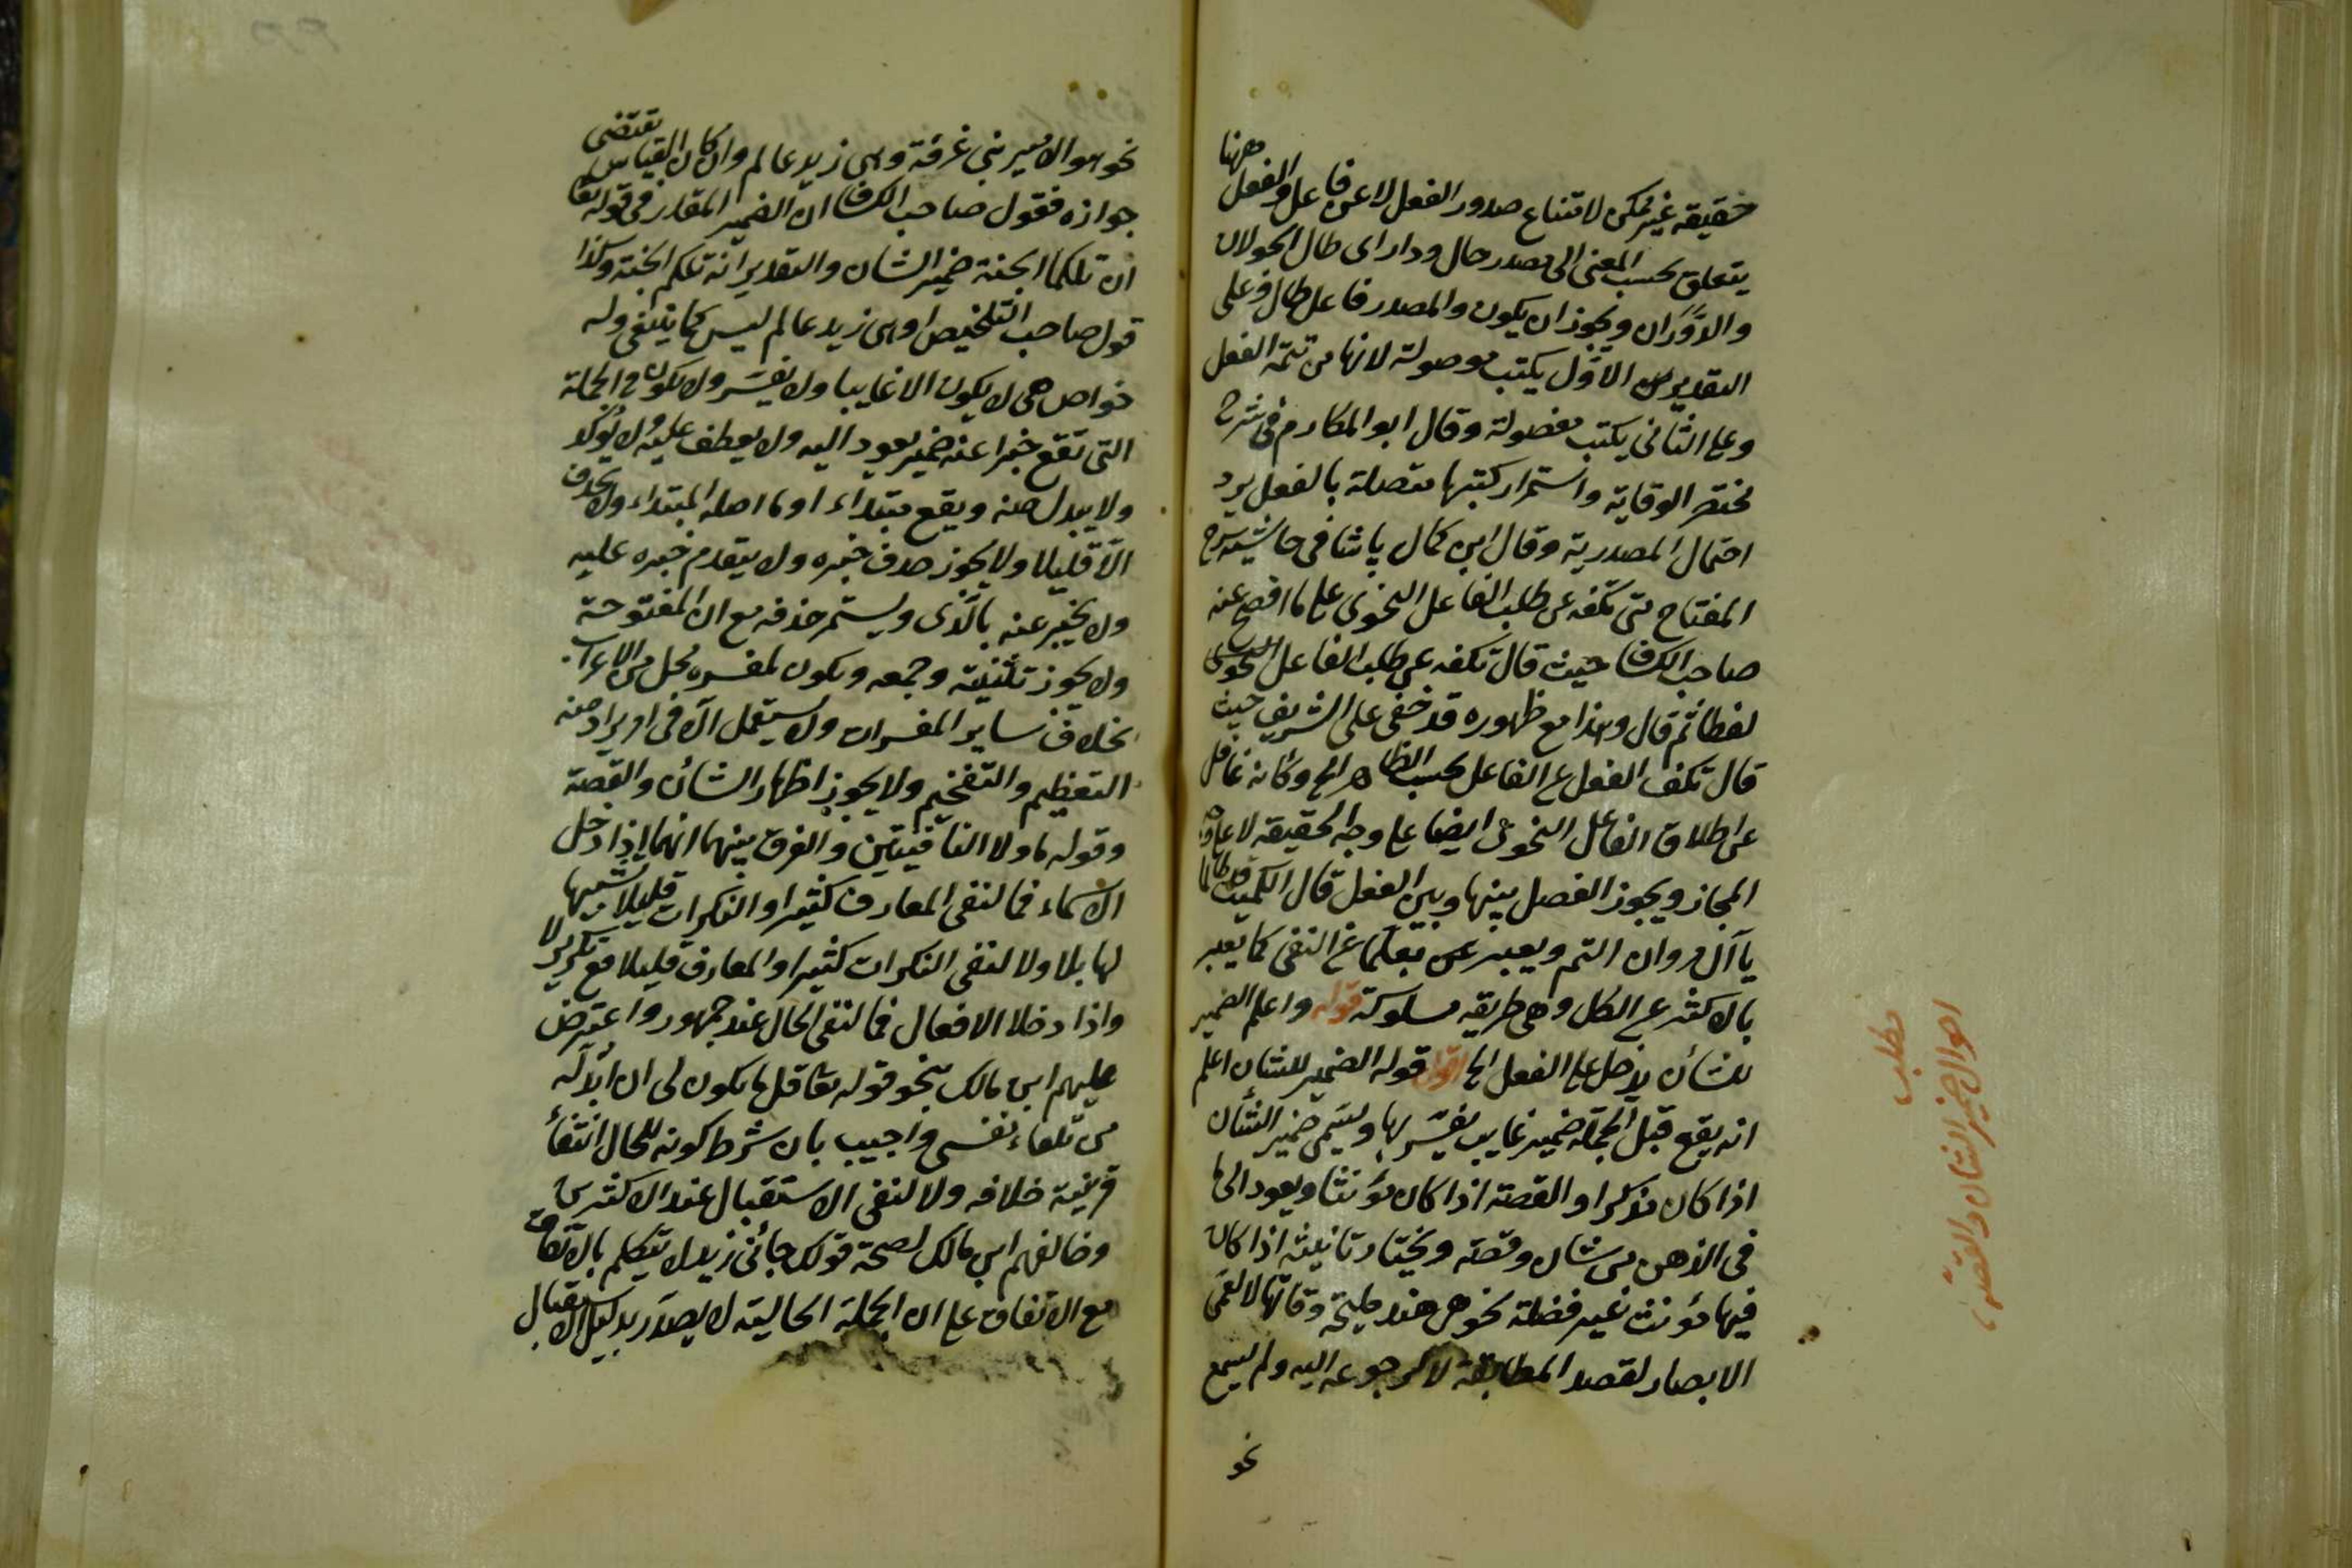 حقيقة غير ممكن لامتناع صدور الفعل لا عن فاعل والفعل ههنا
يتعلق بحسب المعنى الى مصدر حال ودار اى طال الحولان
والدوران ويجوز ان يكون والمصدر فاعل طال وعلى
التقدير الاول يكتب موصولة لانها من تتمة الفعل
وعلى الثانى يكتب مفصولة وقال ابو المكارم فى شرح
مختصر الوقاية واستمرار كتبها متصلة بالفعل يرد
احتمال المصدرية وقال ابن كمال پاشا فى حاشية شرح
المفتاح حتى تكفه عن طلب الفاعل النحوى على ما افصح عنه
صاحب الكشاف حيث قال تكفه عن طلب الفاعل النحوى
لفظا ثم قال وهذا مع ظهوره قد خفى على الشريف حيث
قال تكف الفعل عن الفاعل بحسب الظاهر الخ وكانه غافل
عن اطلاق الفاعل النحوى ايضا على وجه الحقيقة لا على وجه
المجاز ويجوز الفصل بينها وبين الفعل قال الكميت قد طالما
يا آل مروان التم ويعبر عن بقلما عن النفى كما يعبر
بالاكثر عن الكل وهى طريقة مسلوكة قوله واعلم الضمير
للشأن يدخل على الفعل الخ اقول قوله الضمير للشان اعلم
انه يقع قبل الجملة ضمير غايب يفسر بها ويسمى ضمير الشأن
اذا كان مذكرا والقصة اذا كان مؤنثا ويعود الى ما
فى الذهن من شان وقصة ويختار تانيثه اذا كان
فيها مؤنث غير فضلة نحو هى هند مليحة وفانها لا تعمى
الابصار لقصد المطابقة لا لرجوعه اليه ولم يسمع
نحو
مطلب
احوال ضمير الشان والقصة
نحو هو الامير بنى غرفة وهى زيد عالم وان كان القياس يقتضى
جوازه فقول صاحب الكشاف ان الضمير المقدر فى قوله تعا
ان تلكما الجنة ضمير الشان والتقدير انه تلكم الجنة وكذا
قول صاحب التلخيص او هى زيد عالم ليس كما ينبغى وله
خواص هى لا يكون الا غايبا ولا يفسر ولا يكون فى الجملة
التى تقع خبرا عنه ضمير يعود اليه ولا يعطف عليه ولا يؤكد
ولا يبدل منه ويقع مبتداء او ما اصله المبتداء ولا يحذف
الا قليلا ولا يجوز حذف خبره ولا يتقدم خبره عليه
ولا يخبر عنه بالذى ويستمر حذفه مع ان المفتوحة
ولا يجوز تثنيته وجمعه ويكون لمفسره محل من الاعراب
بخلاف ساير المفسرات ولا يستعمل الا فى امر يراد منه
التعظيم والتفخيم ولا يجوز اظهار الشأن والقصة
وقوله ما ولا النافيتين والفرق بينهما انهما اذا دخل
الاسماء فما لنفى المعارف كثيرا والنكرات قليلا تشبيها
لها بلا ولا لنفى النكرات كثيرا والمعارف قليلا مع تكرير لا
واذا دخلا الافعال فما لنفى الحال عند جمهور واعترض
عليهم ابن مالك بنحو قوله تعا قل ما يكون لى ان ابدله
من تلقاء نفسى واجيب بان شرط كونه للحال انتفأ
قرينة خلافه ولا لنفى الاستقبال عند الاكثرين
وخالفهم ابن مالك لصحة قولك جائنى زيد لا يتكلم بالاتفاق
مع الاتفاق على ان الجملة الحالية لا يصدر بدليل الاستقبال